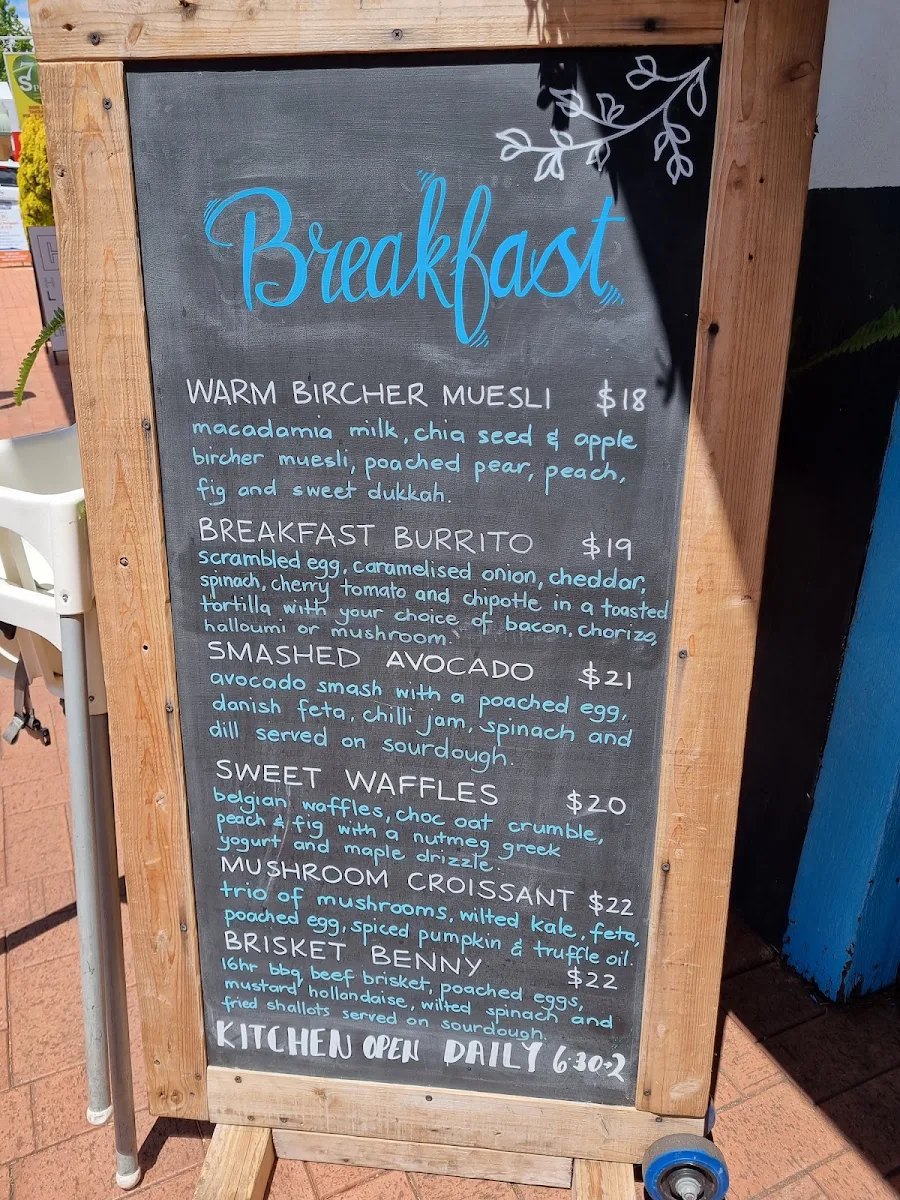 Breakfast
WARM BIRCHER MUESLI $18
macadamia milk, chia seed & apple
bircher muesli, poached pear, peach,
fig and sweet dukkah.
BREAKFAST BURRITO $19
scrambled egg, caramelised onion, cheddar,
spinach, cherry tomato and chipotle in a toasted
tortilla with your choice of bacon, chorizo,
halloumi or mushroom.
SMASHED AVOCADO $21
avocado smash with a poached egg,
danish feta, chilli jam, spinach and
dill served on sourdough.
SWEET WAFFLES $20
belgian waffles, choc oat crumble,
peach & fig with a nutmeg greek
yogurt and maple drizzle.
MUSHROOM CROISSANT $22
trio of mushrooms, wilted kale, feta,
poached egg, spiced pumpkin & truffle oil.
BRISKET BENNY $22
16hr bbq beef brisket, poached eggs,
mustard hollandaise, wilted spinach and
fried shallots served on sourdough.
KITCHEN OPEN DAILY 6:30-2